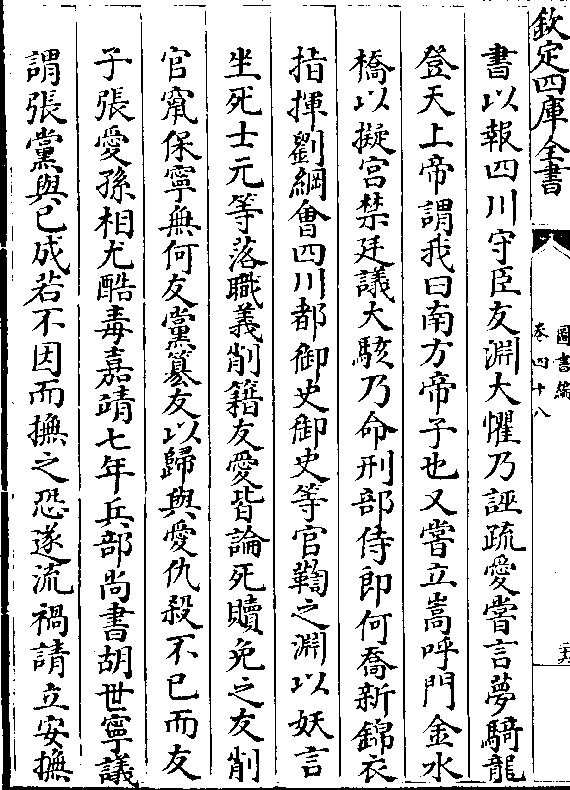 欽定四庫全書
圖書編
卷四十八
書以報四川守臣友淵大懼乃誣疏愛嘗言夢騎龍
登天上帝謂我曰南方帝子也又嘗立嵩呼門金水
橋以擬宮禁廷議大駭乃命刑部侍郎何喬新錦衣
指揮劉綱會四川都御史御史等官鞫之淵以妖言
坐死士元等落職義削籍友愛皆論死贖免之友削
官竄保寧無何友黨簒友以歸與愛仇殺不已而友
子張愛孫相尤酷毒嘉靖七年兵部尚書胡世寧議
謂張黨與已成若不因而撫之恐遂流禍請立安撫